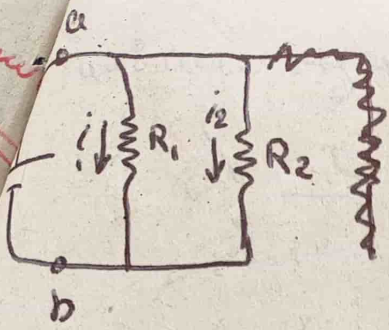 a
i₁ R₁ i₂ R₂
b